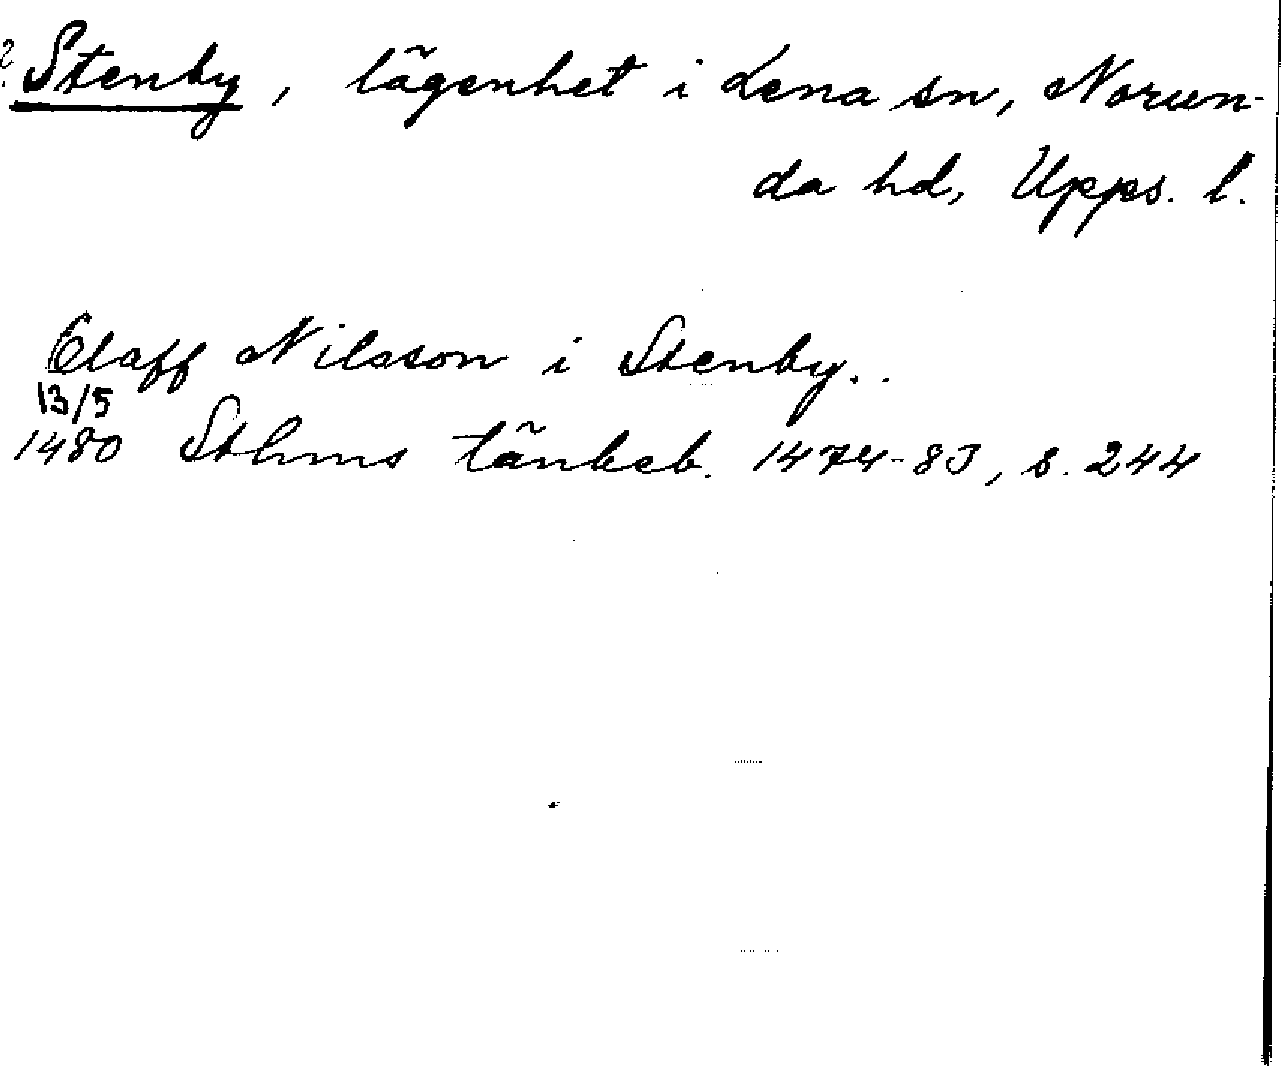 ? Stenby, lägenhet i Lena sn, Norun-
da hd, Upps. l.
Olaff Nilsson i Stenby..
13/5
1480 Sthms tänkeb. 1474-83, s. 244